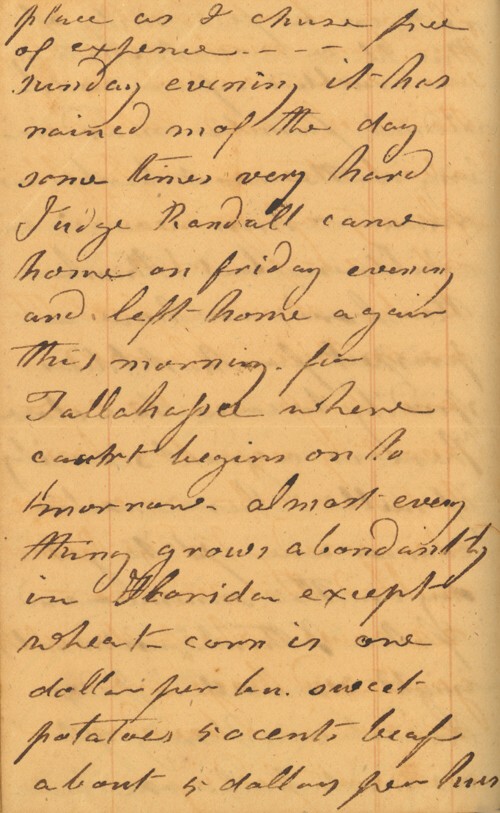 place as I chuse free
of expence - - - -
sunday evening it has
rained most the day
some times very hard
Judge Randall came
home on friday evening
and left home again
this morning for
Tallahassee where
court begins on to
tmorrow - almost every
thing grows abondantly
in Florida except
wheat - corn is one
dollar per bu. sweet
potatoes 50 cents beaf
about 5 dollars per hun